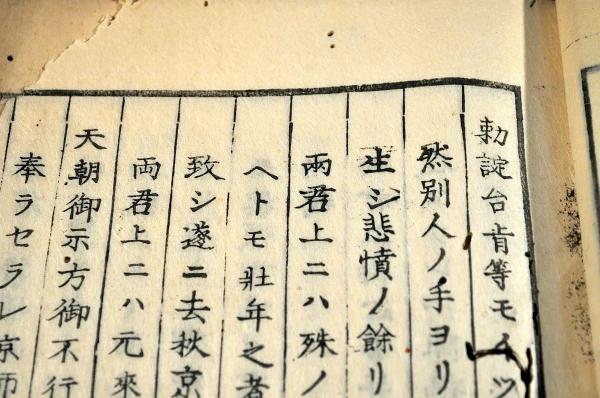 勅諚台肯等モイツ
然別人ノ手ヨリ
生シ悲憤ノ餘リ
兩君上ニハ殊ノ
ヘトモ壯年之者
致シ遂ニ去秋京
両君上ニハ元來
天朝御示方御不行
奉ラセラレ京師